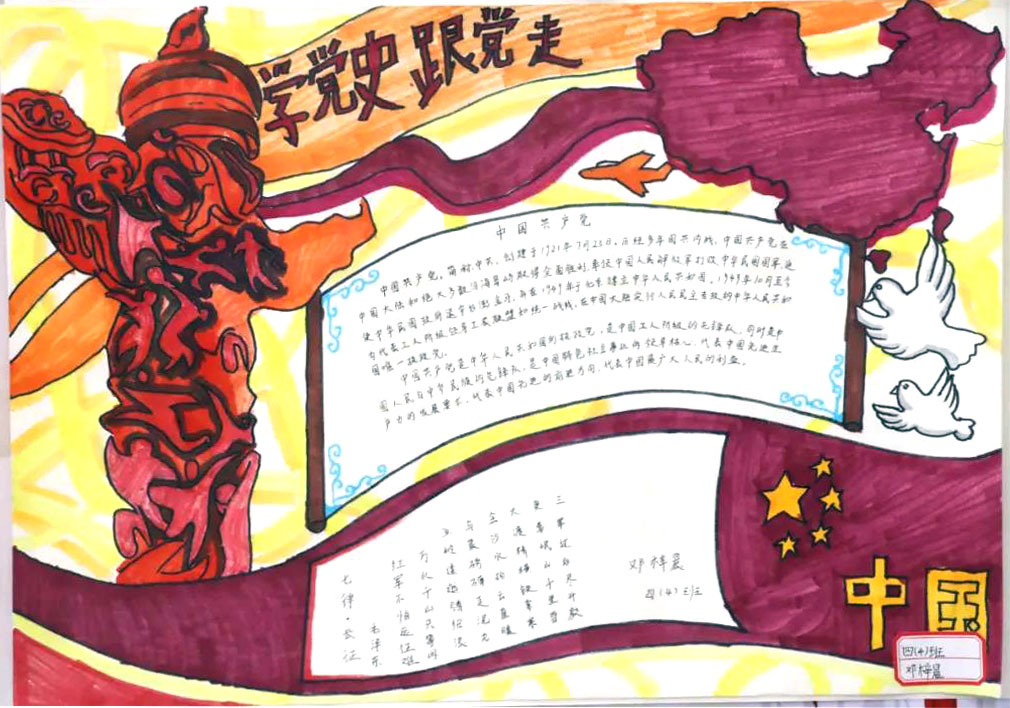 学党史跟党走
中国共产党
中国共产党,简称中共,创建于1921年7月23日。历经多年国共内战,中国共产党在
中国大陆和绝大多数沿海岛屿取得全面胜利,率领中国人民解放军打败中华民国国军,迫
使中华民国政府退守台澎金马,并在1949年于北京建立中华人民共和国。1949年10月至今
为代表工人阶级领导工农联盟和统一战线,在中国大陆实行人民民主专政的中华人民共和
国唯一执政党。
中国共产党是中华人民共和国的执政党,是中国工人阶级的先锋队,同时是中
国人民与中华民族的先锋队,是中国特色社会主义事业的领导核心,代表中国先进生
产力的发展要求,代表中国先进的前进方向,代表中国最广大人民的利益。
七律·长征
毛泽东
红军不怕远征难
万水千山只等闲
大渡桥横铁索寒
三军过后尽开颜
邓梓晨
四(4)班
中国
四(4)班
邓梓晨